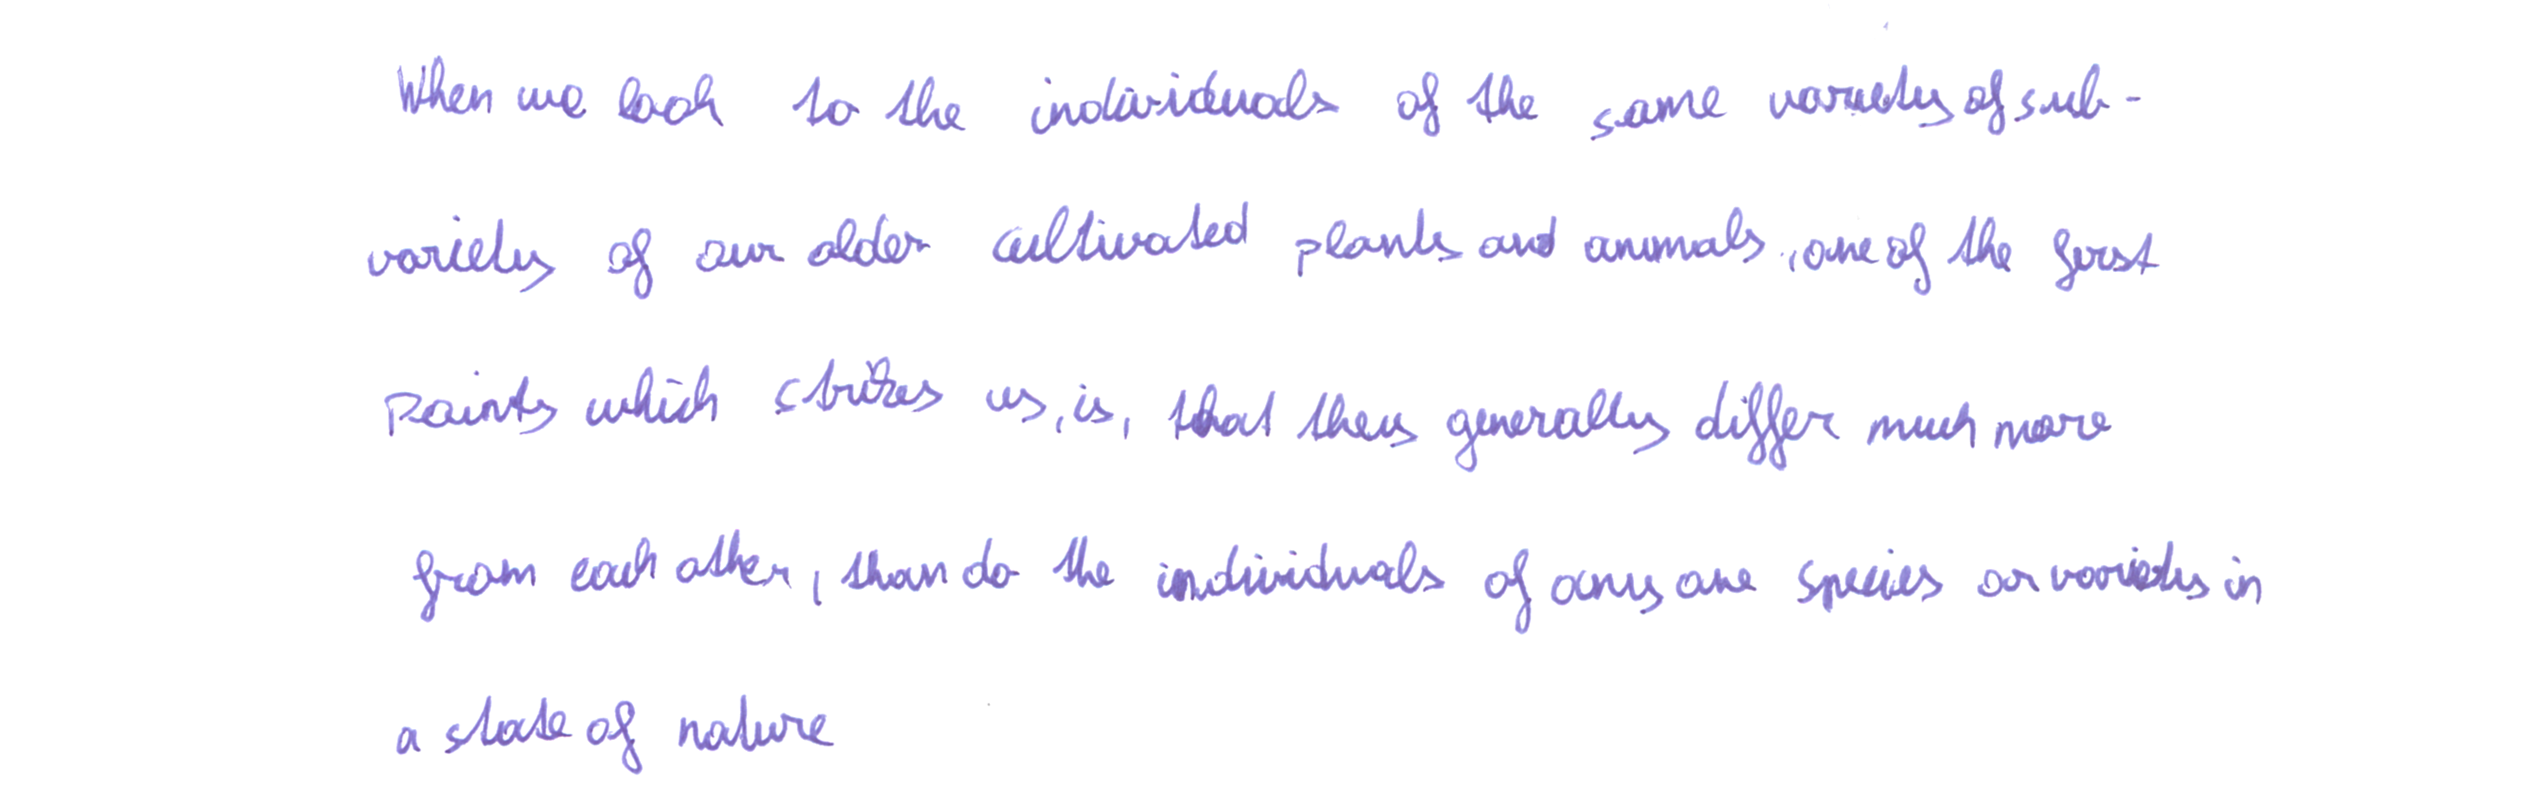 When we look to the individuals of the same variety of sub-
variety of our older cultivated plants and animals, one of the first
points which strikes us, is, that they generally differ much more
from each other, than do the individuals of any one species or variety in
a state of nature